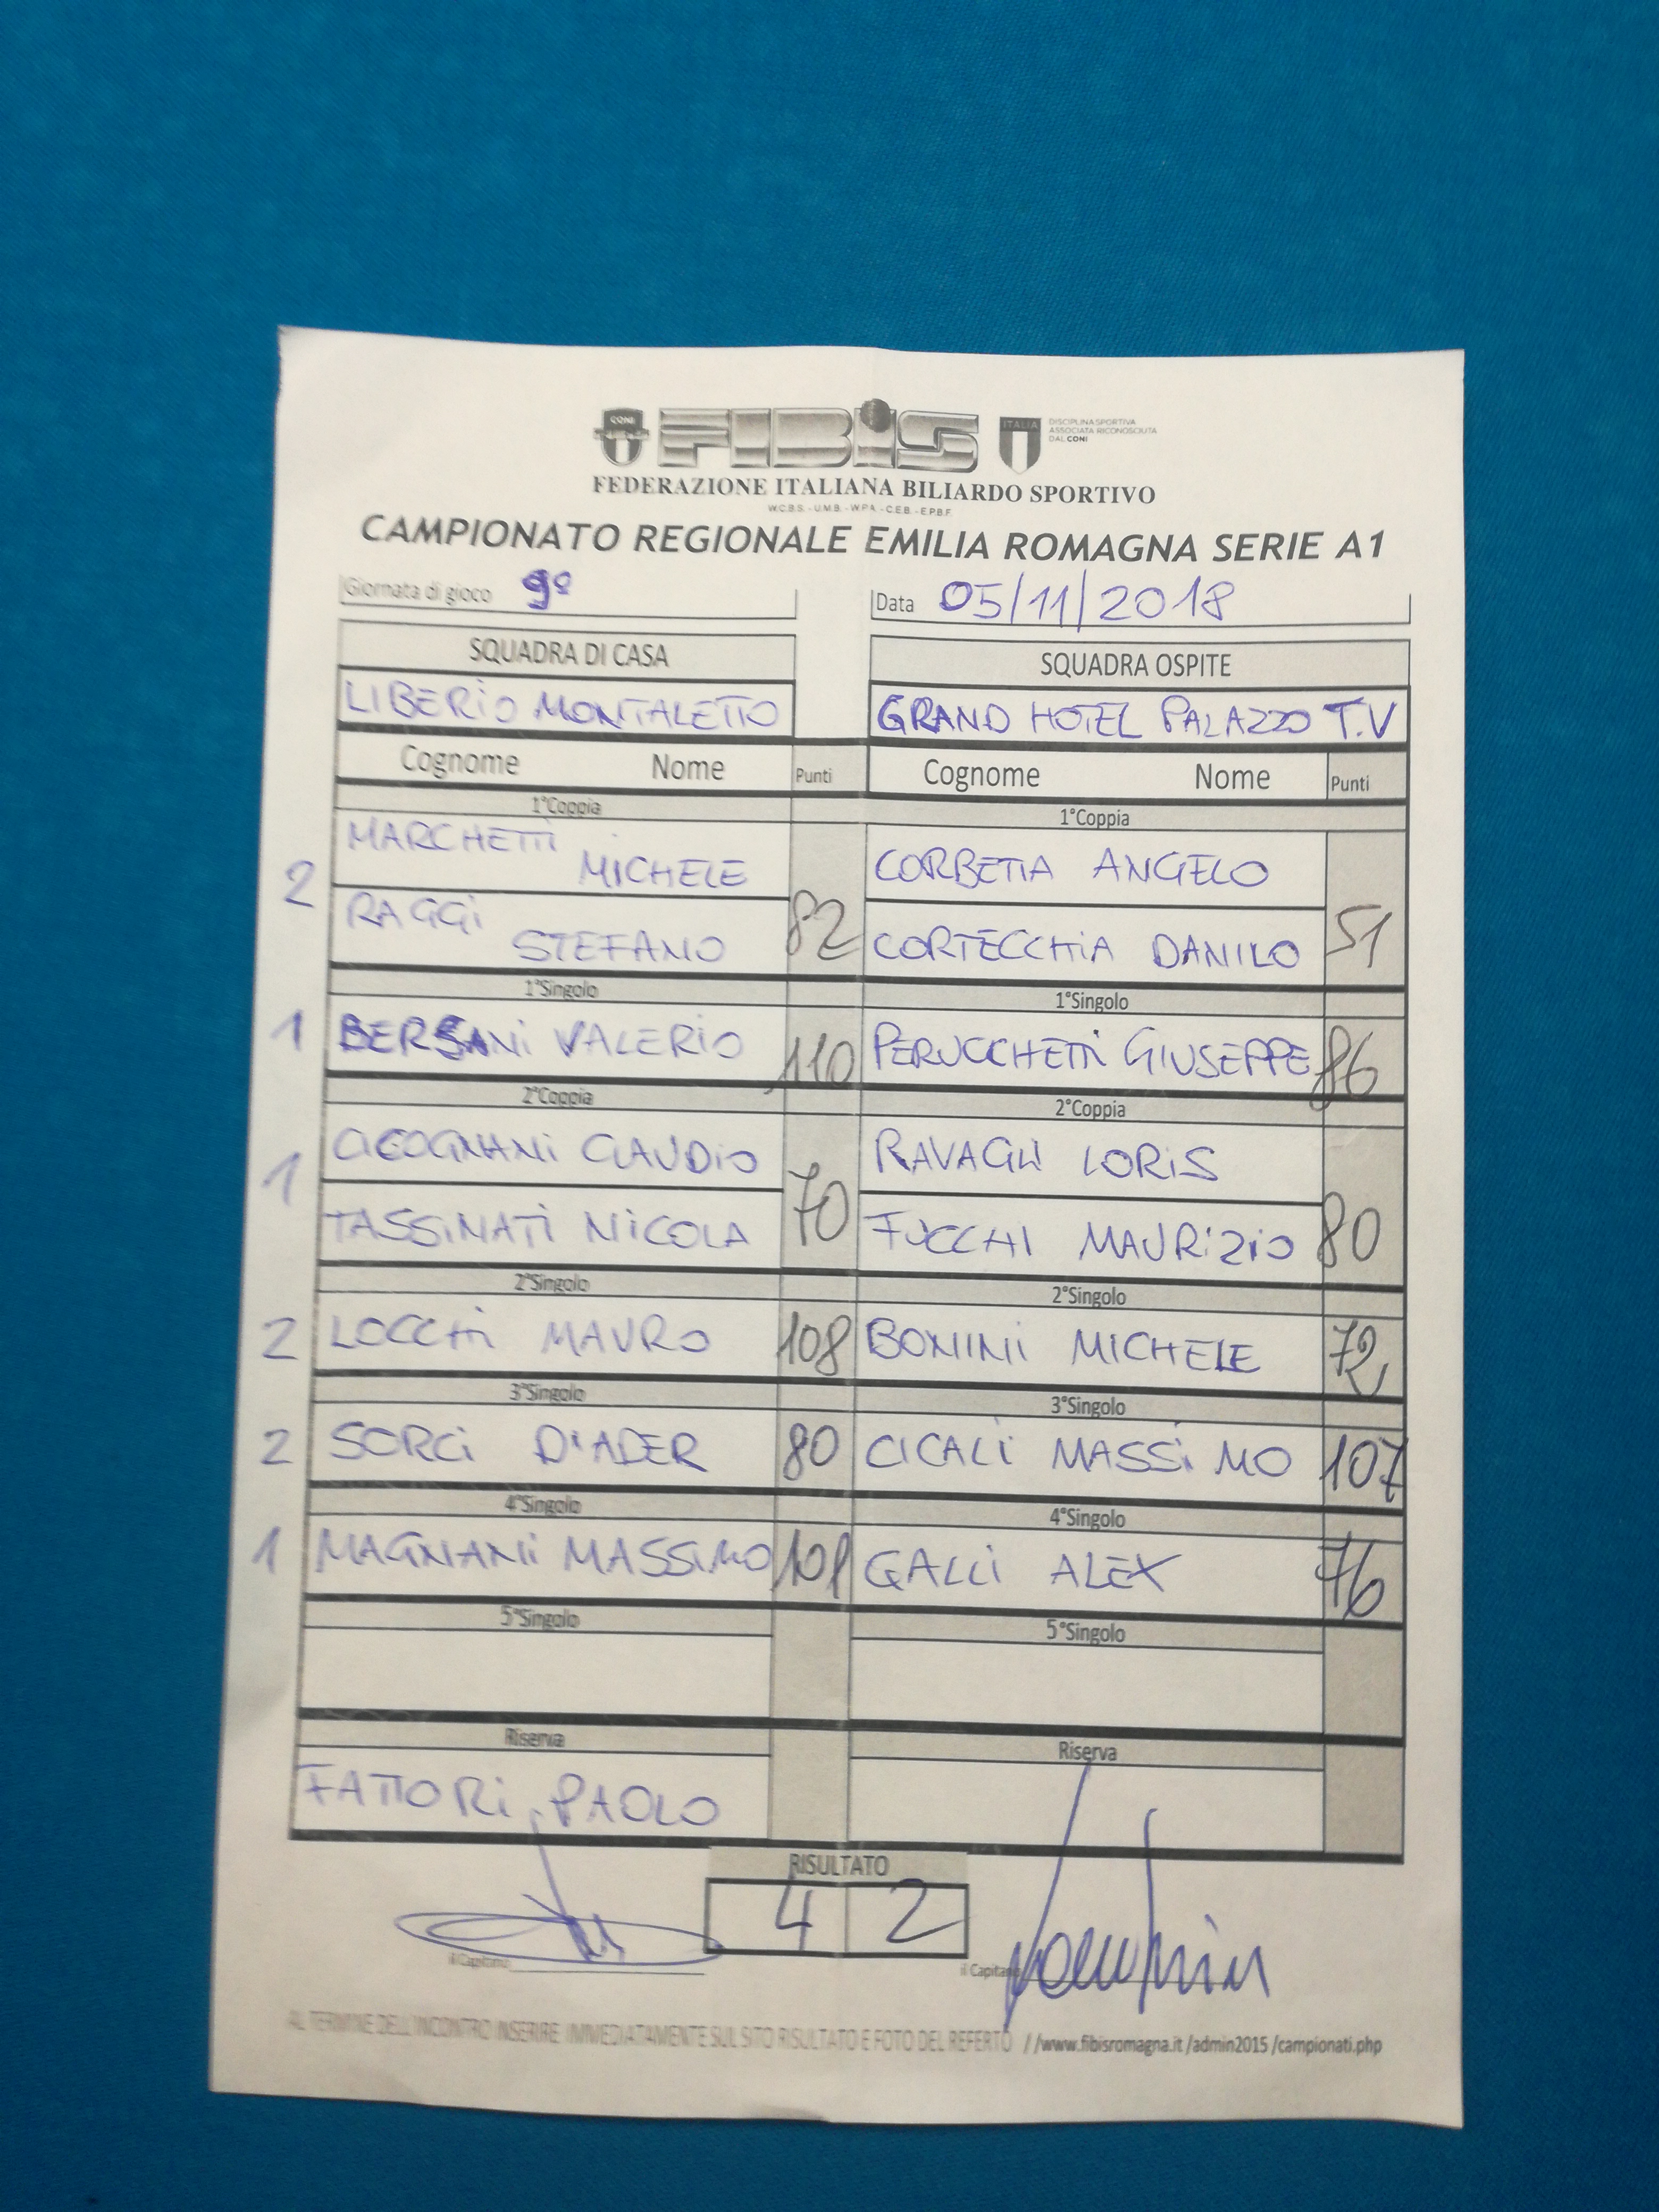 CONI
FIBiS
ITALIA
DISCIPLINA SPORTIVA
ASSOCIATA RICONOSCIUTA
DAL CONI
FEDERAZIONE ITALIANA BILIARDO SPORTIVO
W.C.B.S. - U.M.B. - W.P.A. - C.E.B. - E.P.B.F.
CAMPIONATO REGIONALE EMILIA ROMAGNA SERIE A1
Giornata di gioco 9° Data 05/11/2018
SQUADRA DI CASA SQUADRA OSPITE
LIBERIO MONTALETTO GRAND HOTEL PALAZZO T.V
Cognome Nome Punti Cognome Nome Punti
1°Coppia 1°Coppia
MARCHETTI MICHELE CORBETTA ANGELO
2 82 51
RAGGI STEFANO CORTECCHIA DANILO
1°Singolo 1°Singolo
1 BERSANI VALERIO 110 PERUCCHETTI GIUSEPPE 86
2°Coppia 2°Coppia
CICOGNANI CLAUDIO RAVAGLI LORIS
1 70 80
TASSINATI NICOLA FUCCHI MAURIZIO
2°Singolo 2°Singolo
2 LOCCHI MAURO 108 BONINI MICHELE 72
3°Singolo 3°Singolo
2 SORCI D'ADER 80 CICALI MASSIMO 107
4°Singolo 4°Singolo
1 MAGNANI MASSIMO 101 GALLI ALEX 76
5°Singolo 5°Singolo
Riserva Riserva
FATTORI PAOLO
RISULTATO
4 2
il Capitano il Capitano
AL TERMINE DELL'INCONTRO INSERIRE IMMEDIATAMENTE SUL SITO RISULTATO E FOTO DEL REFERTO //www.fibisromagna.it /admin2015 /campionati.php